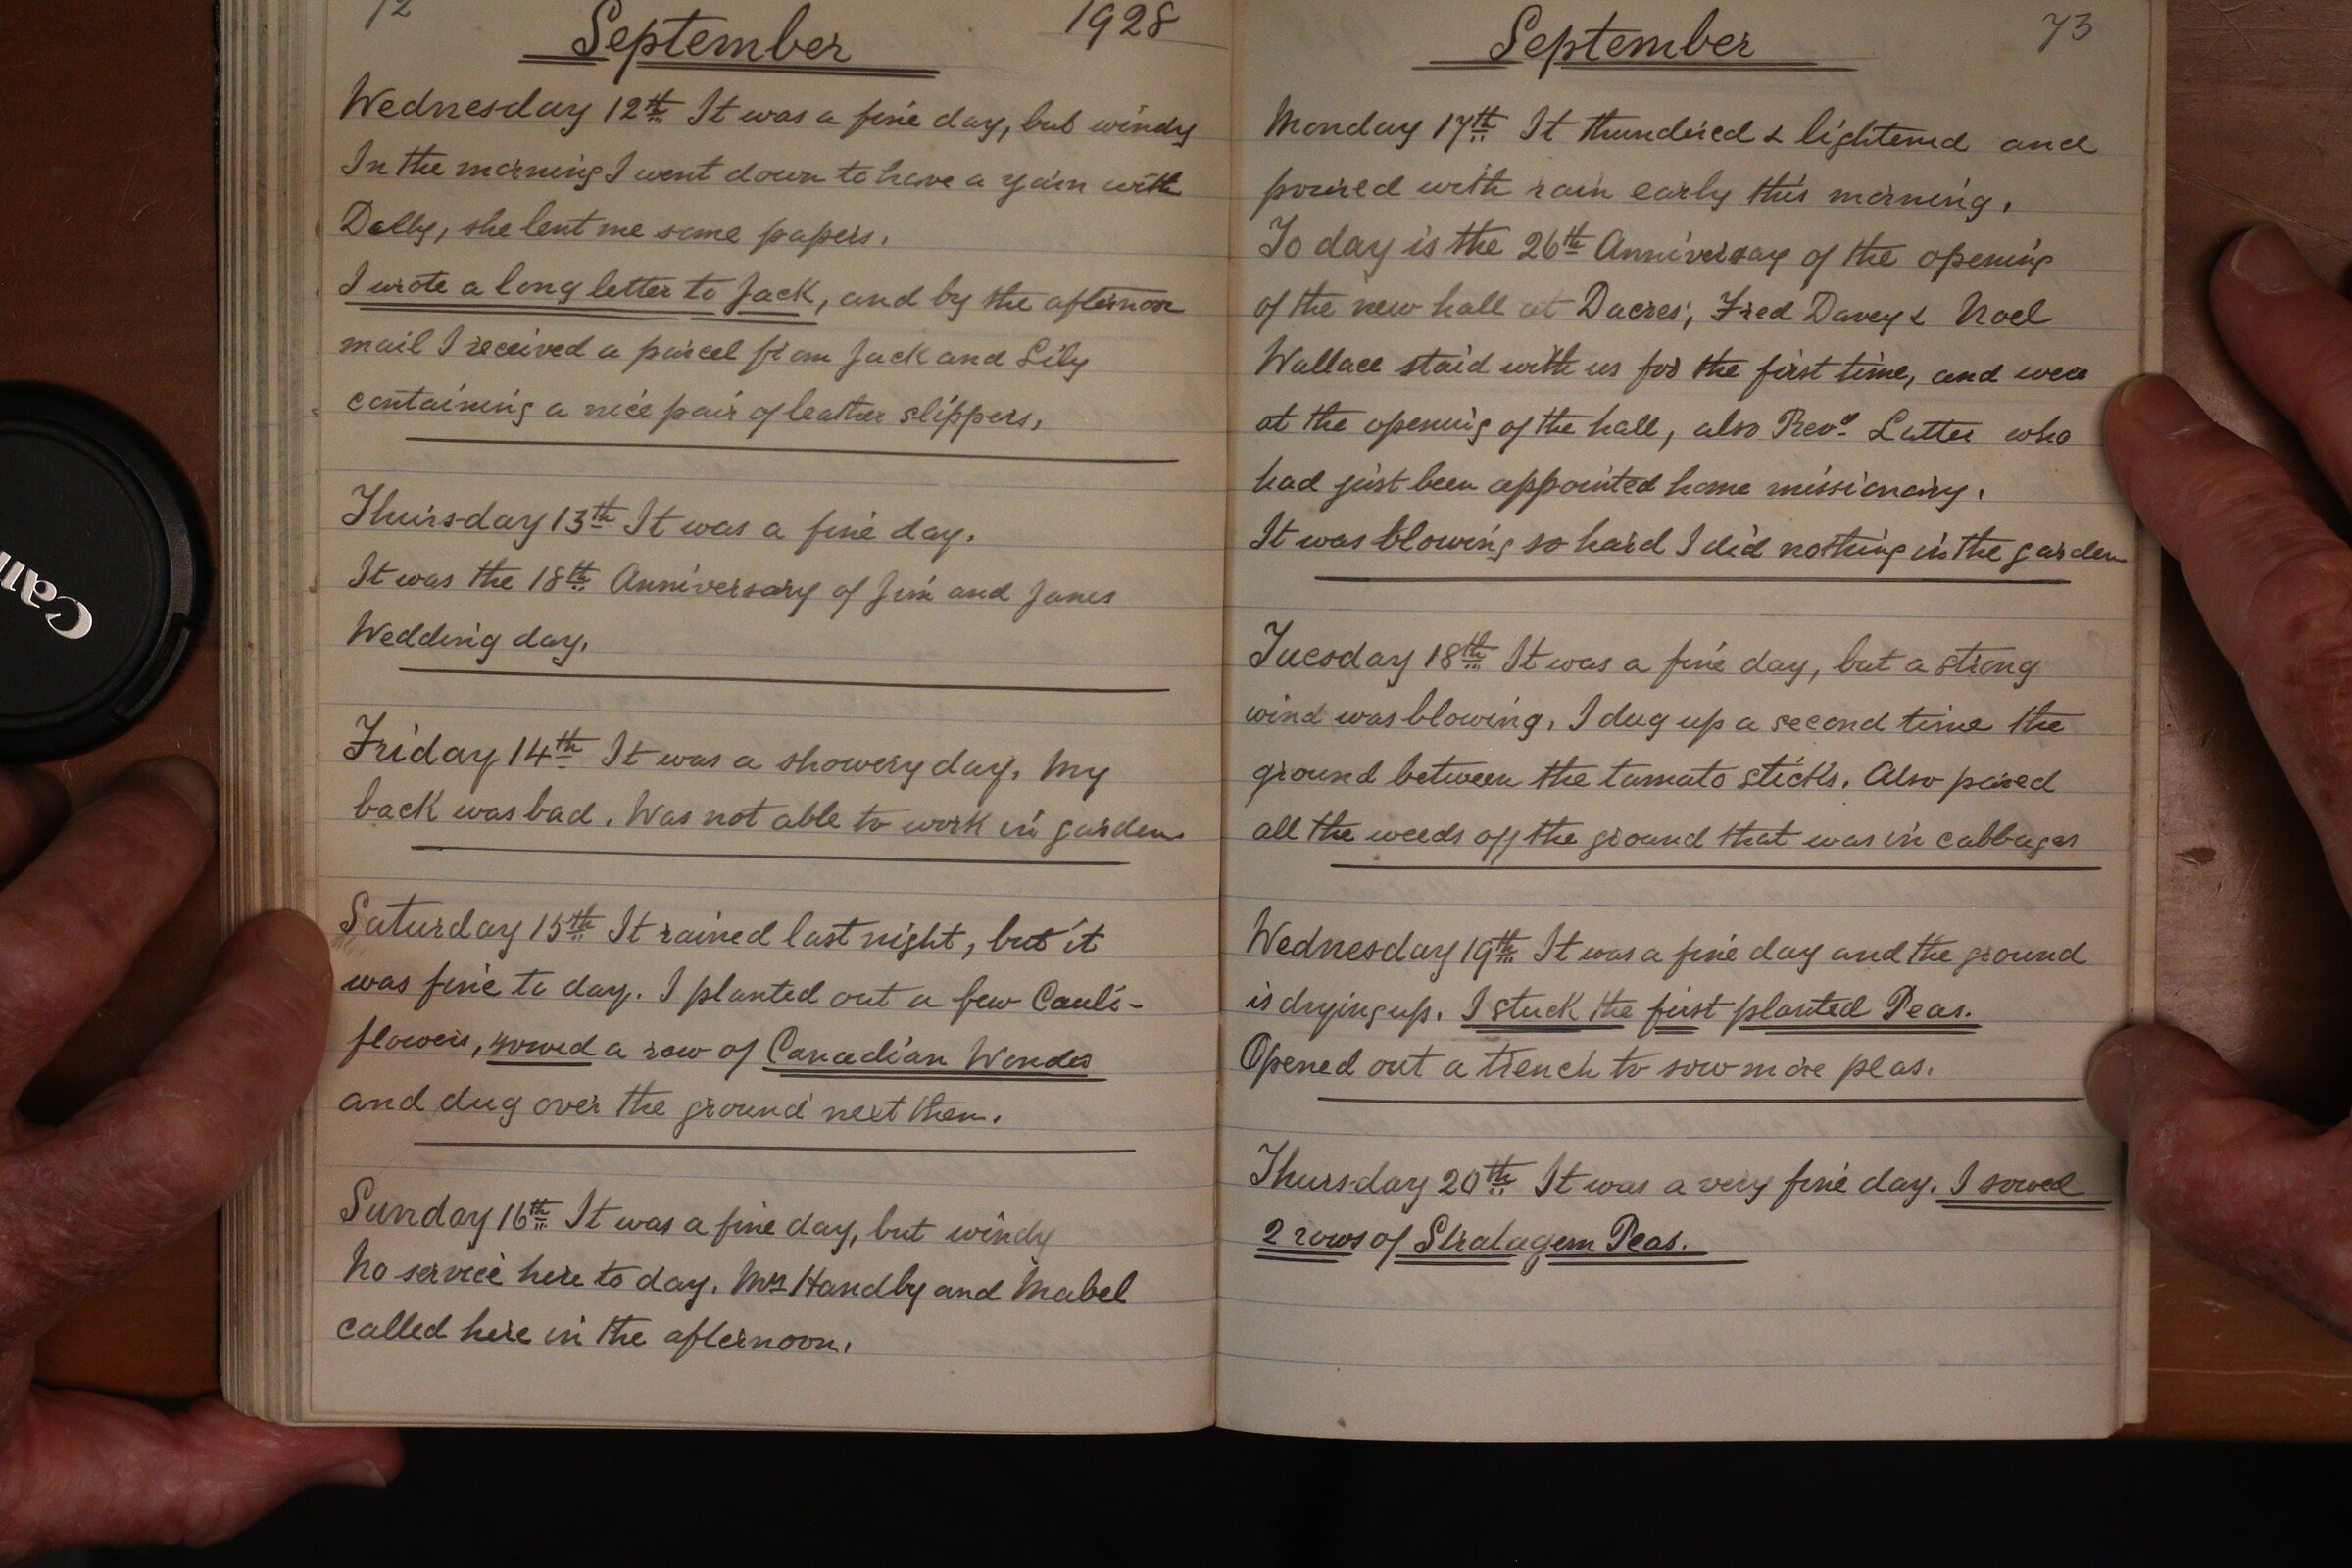 72
September
1928
Wednesday 12th It was a fine day, but windy
In the morning I went down to have a yarn with
Dolly, she lent me some papers.
I wrote a long letter to Jack, and by the afternoon
mail I received a parcel from Jack and Lily
containing a nice pair of leather slippers.
Thursday 13th It was a fine day.
It was the 18th Anniversary of Jim and Janes
Wedding day.
Friday 14th It was a showery day. My
back was bad. Was not able to work in garden
Saturday 15th It rained last night, but it
was fine to day. I planted out a few Cauli-
flowers, sowed a row of Canadian Wonder
and dug over the ground next them.
Sunday 16th It was a fine day, but windy
No service here to day. Mrs Handby and Mabel
called here in the afternoon.
September
73
Monday 17th It thundered & lightened and
poured with rain early this morning.
To day is the 26th Anniversay of the opening
of the new hall at Dacres', Fred Davey & Noel
Wallace staid with us for the first time, and were
at the opening of the hall, also Revd. Latter who
had just been appointed home missionary.
It was blowing so hard I did nothing in the garden
Tuesday 18th It was a fine day, but a strong
wind was blowing. I dug up a second time the
ground between the tomato sticks. Also pared
all the weeds off the ground that was in cabbages
Wednesday 19th It was a fine day and the ground
is drying up. I stuck the first planted Peas.
Opened out a trench to sow more peas.
Thursday 20th It was a very fine day. I sowed
2 rows of Stratagem Peas.
Can